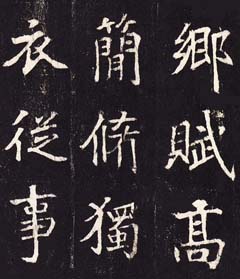 鄉賦高
簡脩獨
衣從事